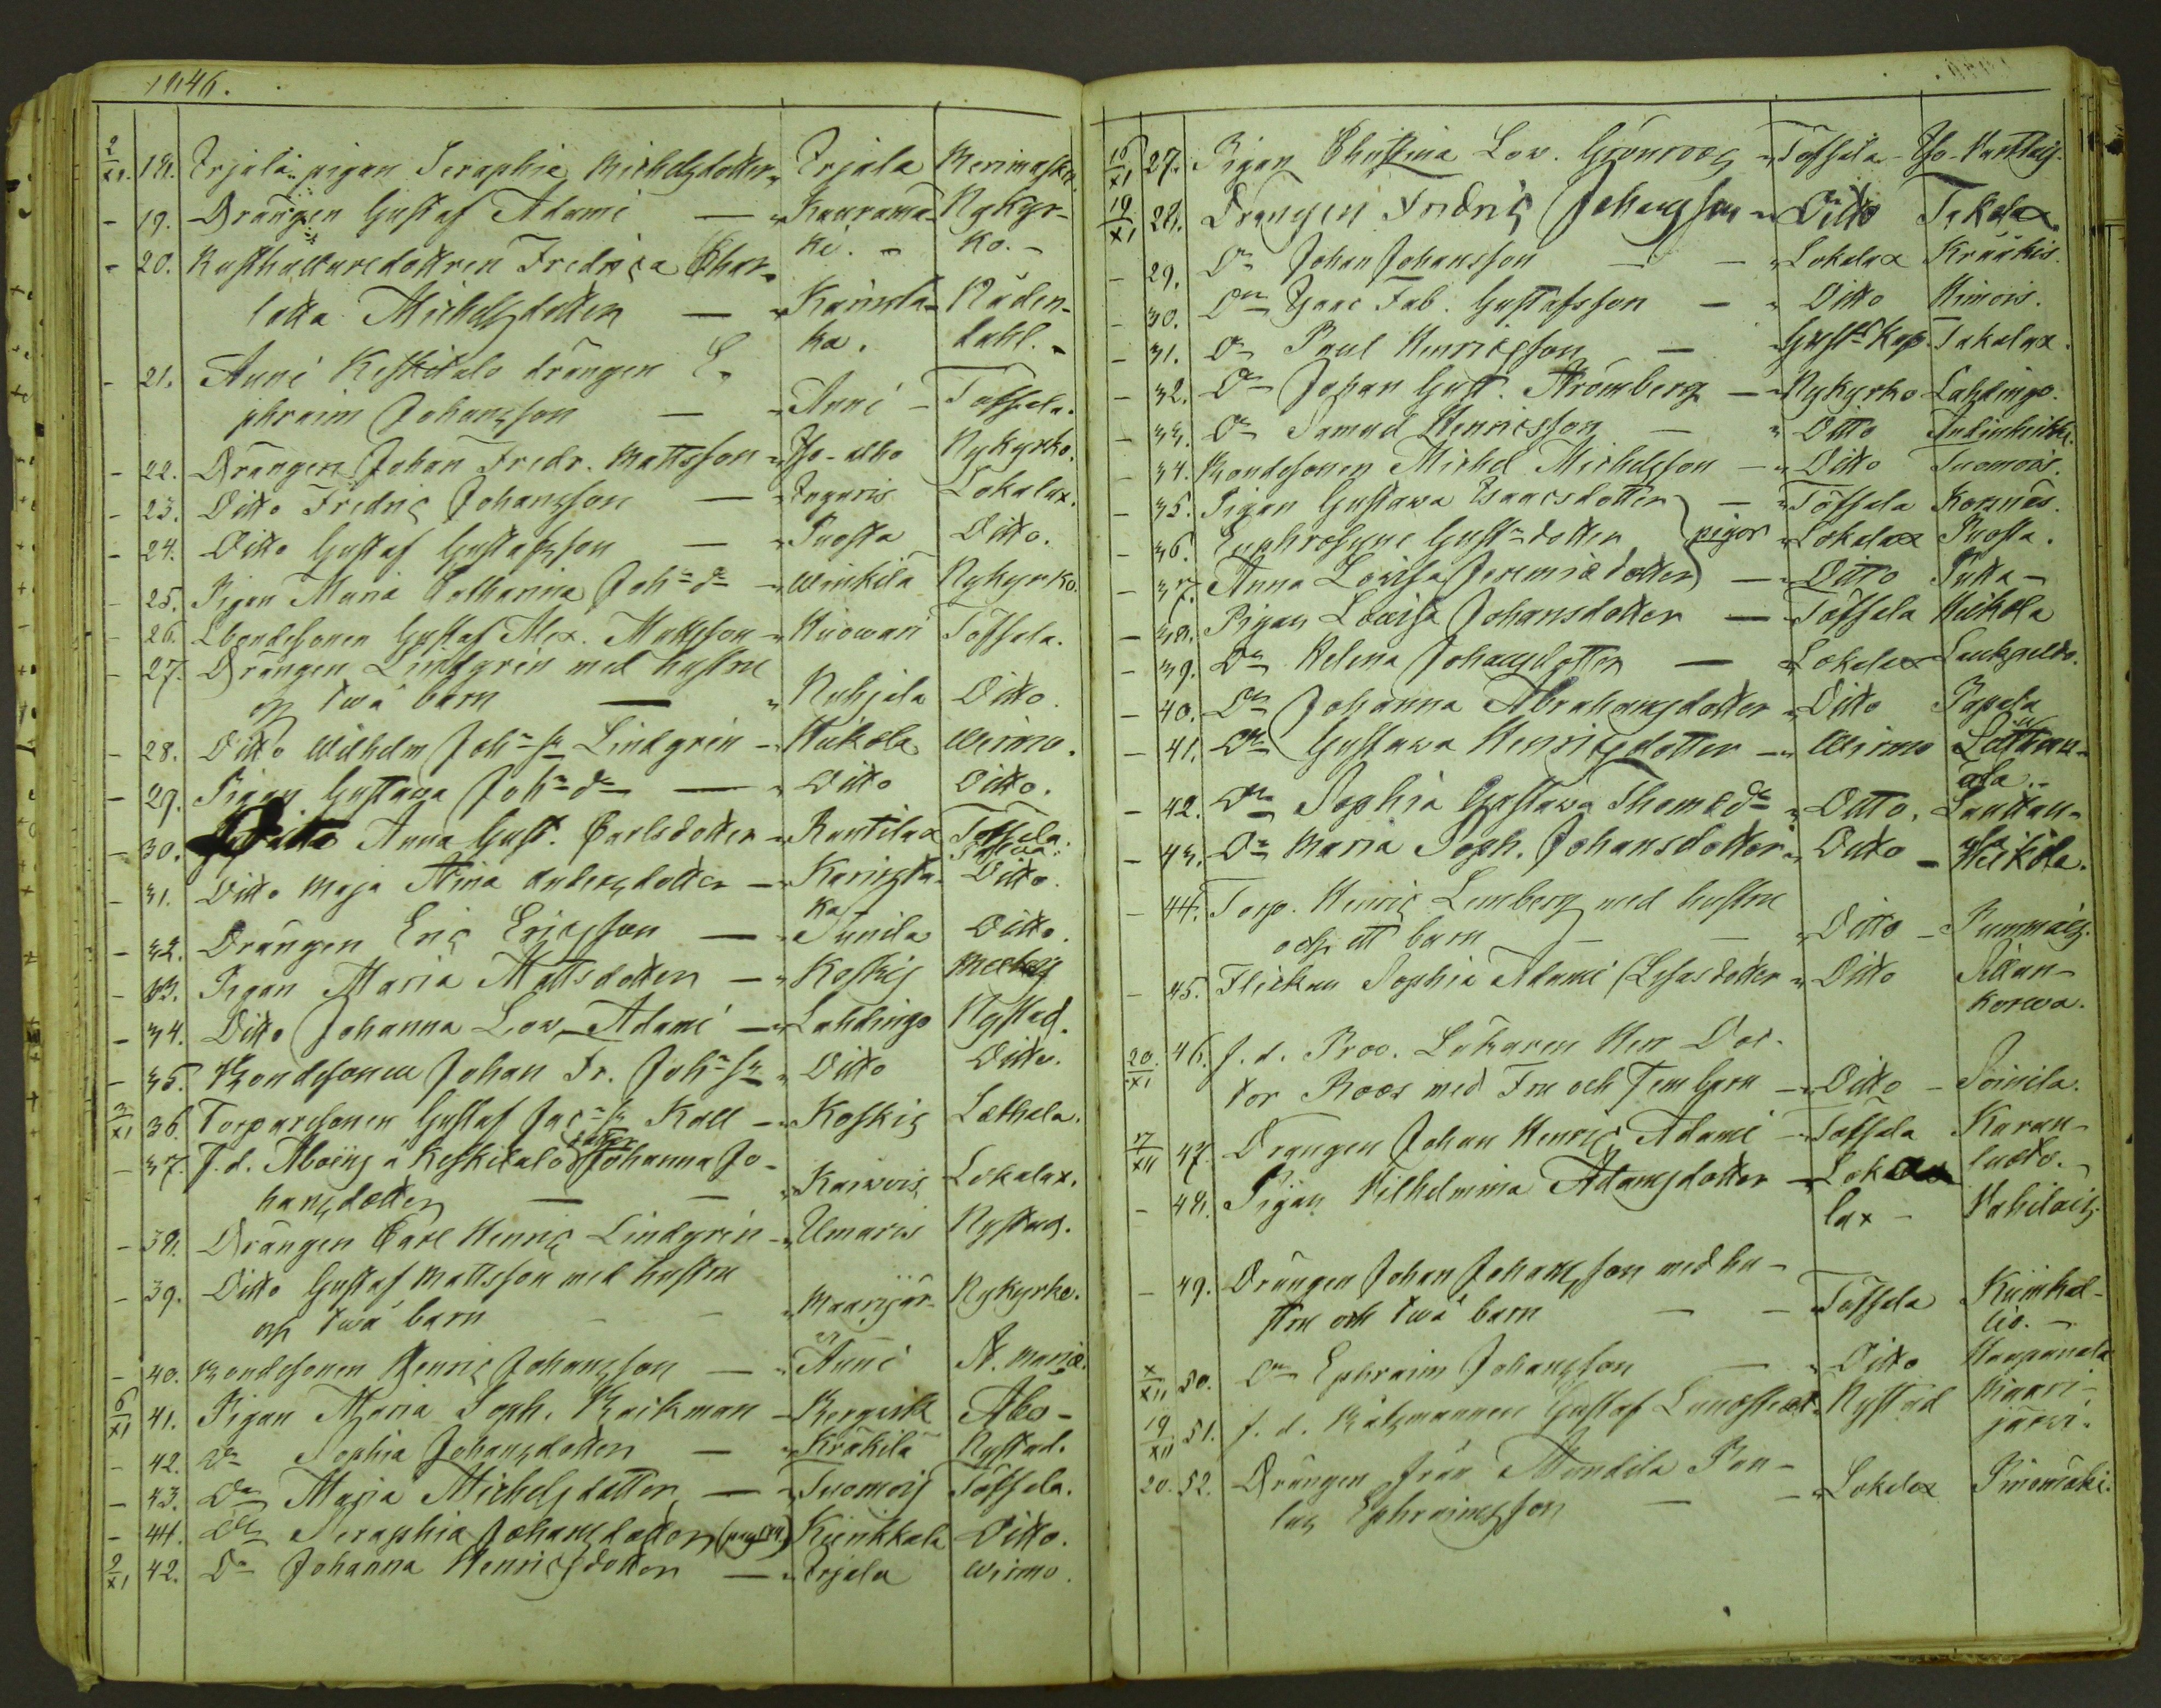 1846.
2/XI. 18. Irjala pigan Seraphia Michelsdotter Irjala Merimasku
- 19. Drängen Gustaf Adami — Kaurama- Nykyr-
- 20. Rusthållaredottren Fredrica Char- ki. - ko. -
lotta Michelsdotter — Kärinkta- Nåden-
ka. dahl. -
- 21. Anni Keskitalo drängen E-
phraim Johansson — Anni - Töfsala.
- 22. Drängen Johan Fredr. Mattsson Yso-alho Nykyrko.
- 23. Ditto Fredric Johansson — Lokalax.
- 24. Ditto Gustaf Gustafsson — Puosta Ditto.
- 25. Pigan Maria Catharina Joh:s dr Winkilä Nykyrko.
- 26. Ebondesonen Gustaf Alex. Mattsson Kuowari Töfsala.
- 27. Drängen Lindgrén med hustru
och två barn — Nuhjala Ditto.
- 28. Ditto Wilhelm Joh:s sn Lindgrén - Heikola Wirmo.
- 29. Pigan Gustava Joh:s dr — Ditto Ditto.
- 30. Ditto Anna Gust. Carlsdotter Rantila Töfsala
- 31. Ditto Maja Stina Andersdotter — Karinkta- Ditto.
ka
- 32. Drängen Eric Ericsson — Sunila Ditto.
- 33. Pigan Maria Mattsdotter — Koskis
- 34. Ditto Johanna Lov. Adami — Lahdingo Nystad.
- 35. Bondesonen Johan Fr. Joh:s sn Ditto Ditto.
3/XI 36. Torparesonen Gustaf Jac:s sn Kall — Koskis Lethala.
- 37. F. d. å Keskitalo dotter Johanna Jo-
hansdotter — — Karvois Lokalax.
- 38. Drängen Carl Henric Lindgrén — Elmaris Nystad.
- 39. Ditto Gustaf Mattsson med hustru
och två barn - - Maarijär- Nykyrko.
- 40. Bondesonen Henric Johansson — Anni St. Mariæ.
6/XI 41. Pigan Maria Soph. Backman — Bergvik Åbo -
- 42. Dn Sophia Johansdotter — Kräkilä Nystad.
- 43. Dn Maria Michelsdotter — Tuomois Töfsala.
- 44. Dn Seraphia Johansdotter Kiinkkala Ditto.
2/XI 42. Dn Johanna Henricsdotter — Irjala Wirmo.
16/XI 27. Pigan Christina Lov. Grönroos Töfsala -
19/XI 28. Drängen Fredric Johansson Ditto Takala
- 29. Dn Johan Johansson — Lokalax Kräkis.
- 30. Dn Isaac Fab. Gustafsson — Ditto Himois.
- 31. Dn Paul Henricsson — Gust:s Kap. Takalax.
- 32. Dn Johan Gust. Strömberg — Nykyrko Lahdingo.
- 33. Dn Samuel Henricsson — Ditto
- 34. Bondesonen Michel Michelsson — Ditto Tuomois.
- 35. Pigan Gustava Isaacsdotter — Töfsala Kornäs.
- 36. Euphrosyne Gust:s dotter pigor Lokalax Puosta.
- 37. Anna Lovisa Jeremiædotter — Ditto Puka -
- 38. Pigan Lovisa Johansdotter — Töfsala Heikola
- 39. Dn Helena Johansdotter — Lokalax
- 40. Dn Johanna Abrahamsdotter Ditto Papala
- 41. Dn Gustava Henricsdotter — Wirmo Lauttan-
ala -
- 42. Dn Sophia Gustava Thomæ dr Ditto. Lauttan-
- 43. Dn Maria Soph. Johansdotter Ditto - Heikola.
- 44. Torp. Henric Lemberg med hustru
och ett barn — Ditto - Pummois.
- 45. Flickan Sophia Adami Esasdotter Ditto Sillan-
korva.
20/XI 46. f. d. Prov. Läkaren Herr Doc-
tor Roos med Fru och Fem barn — Ditto - Soinila.
17/XII 47. Drängen Johan Henric Adami — Töfsala Karan-
- 48. Pigan Wilhelmina Adamsdotter — Loka
lax - Wahilais
- 49. Drängen Johan Johansson med hu-
stru och två barn — Töfsala Kiinkal-
lio. -
X/XII 50. Dn Ephraim Johansson — Ditto Haapanala
19/XII 51. f. d. Båtsmannen Gustaf Lundstedt Nystad Maari-
järvi.
20. 52. Drängen från Mundila Pau-
lus Ephraimsson — Lokalax Pinomäki.